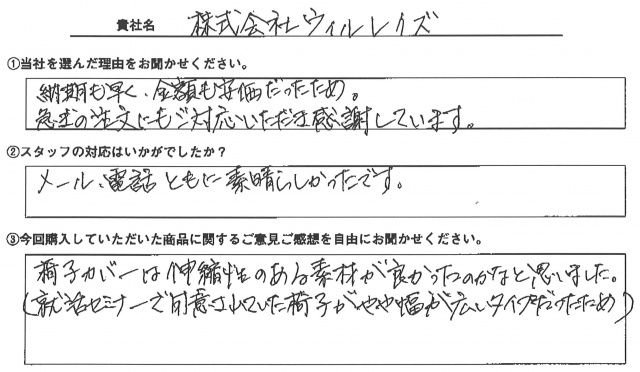 貴社名 株式会社ウィルレイズ
①当社を選んだ理由をお聞かせください。
納期も早く、金額も安価だったため。
急ぎの注文にもご対応いただき感謝しています。
②スタッフの対応はいかがでしたか？
メール、電話ともに素晴らしかったです。
③今回購入していただいた商品に関するご意見ご感想を自由にお聞かせください。
椅子カバーは伸縮性のある素材が良かったのかなと思いました。
(就活セミナーで用意されていた椅子がやや幅が広いタイプだったため)